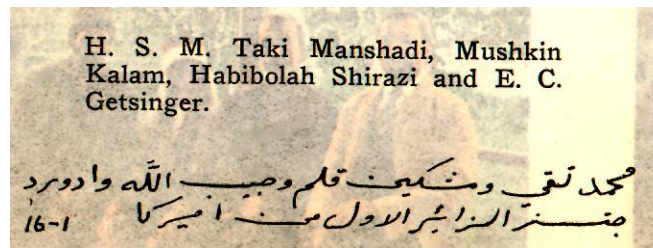 H. S. M. Taki Manshadi, Mushkin
Kalam, Habibolah Shirazi and E. C.
Getsinger.
محمد تقي ومشكين قلم وحبيب الله وادورد
جتسنر الزائر الاول من اميركا
16-1